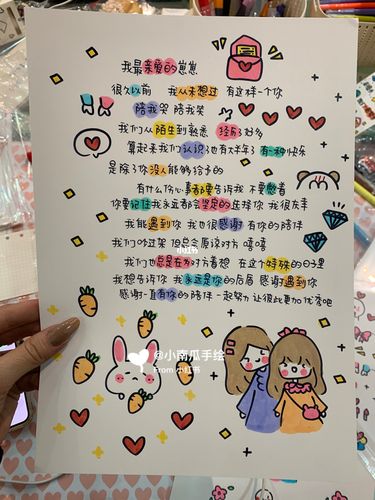 我最亲爱的崽崽
很久以前 我从未想过 有这样一个你
陪我哭 陪我笑
我们从陌生到熟悉 经历好多
算起来我们认识也有好多年了 有一种快乐
是除了你没人能够给予的
有什么伤心事都要告诉我 不要憋着
你要记住我永远都会坚定的选择你 我很庆幸
我能遇到你 我也很感谢 有你的陪伴
我们吵过架 但总会原谅对方 嘻嘻
我们也总是在为对方着想 在这个特殊的日子里
我想告诉你 我永远是你的后盾 感谢遇到你
感谢一直有你的陪伴 一起努力 让彼此更加优秀吧
小红书
@小南瓜手绘
From 小红书